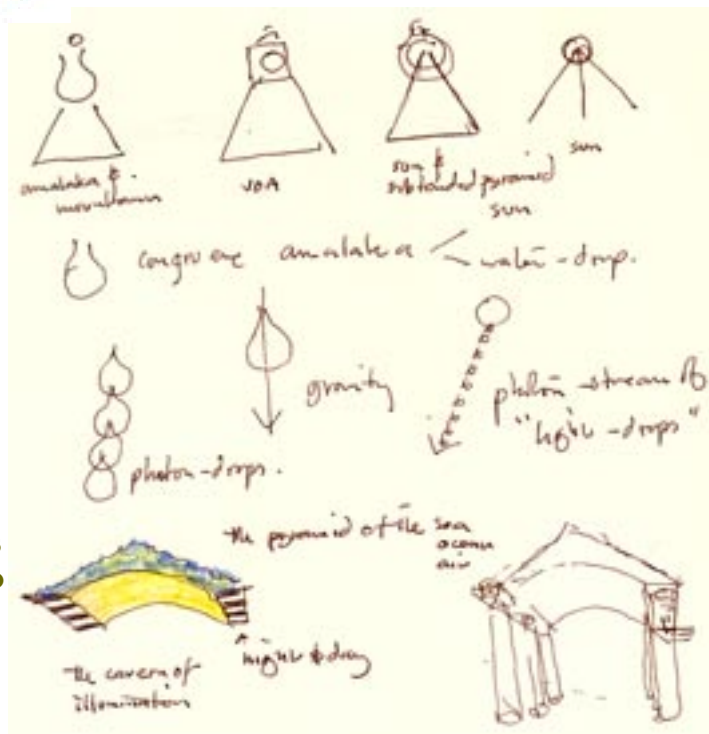 amalaka &
mountain
JOA
sun &
subtended pyramid
sun
sun
congruence amalaka < water-drop.
gravity
photon-stream of
"light-drops"
photon-drops.
the pyramid of the sea
ocean
air
night & day
the cavern of
illumination